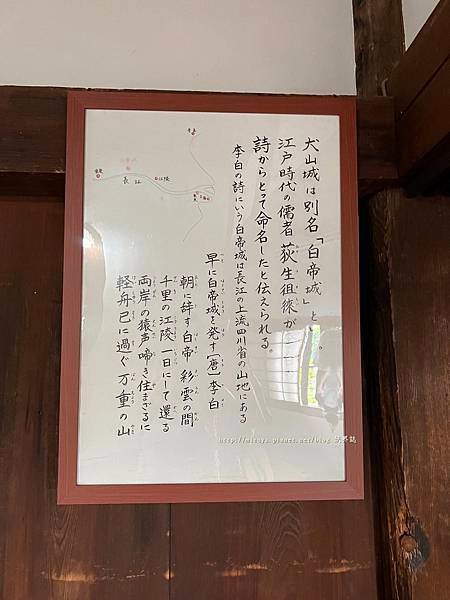 犬山城は別名「白帝城」と
江戸時代の儒者荻生徂徠が
詩からとって命名したと伝えられる。
李白の詩にいう白帝城は長江の上流四川省の山地にある
早に白帝城を発す〔唐〕李白
朝に辞す白帝彩雲の間
千里の江陵一日にして還る
両岸の猿声啼き住まざるに
軽舟已に過ぐ万重の山
長江
江陵